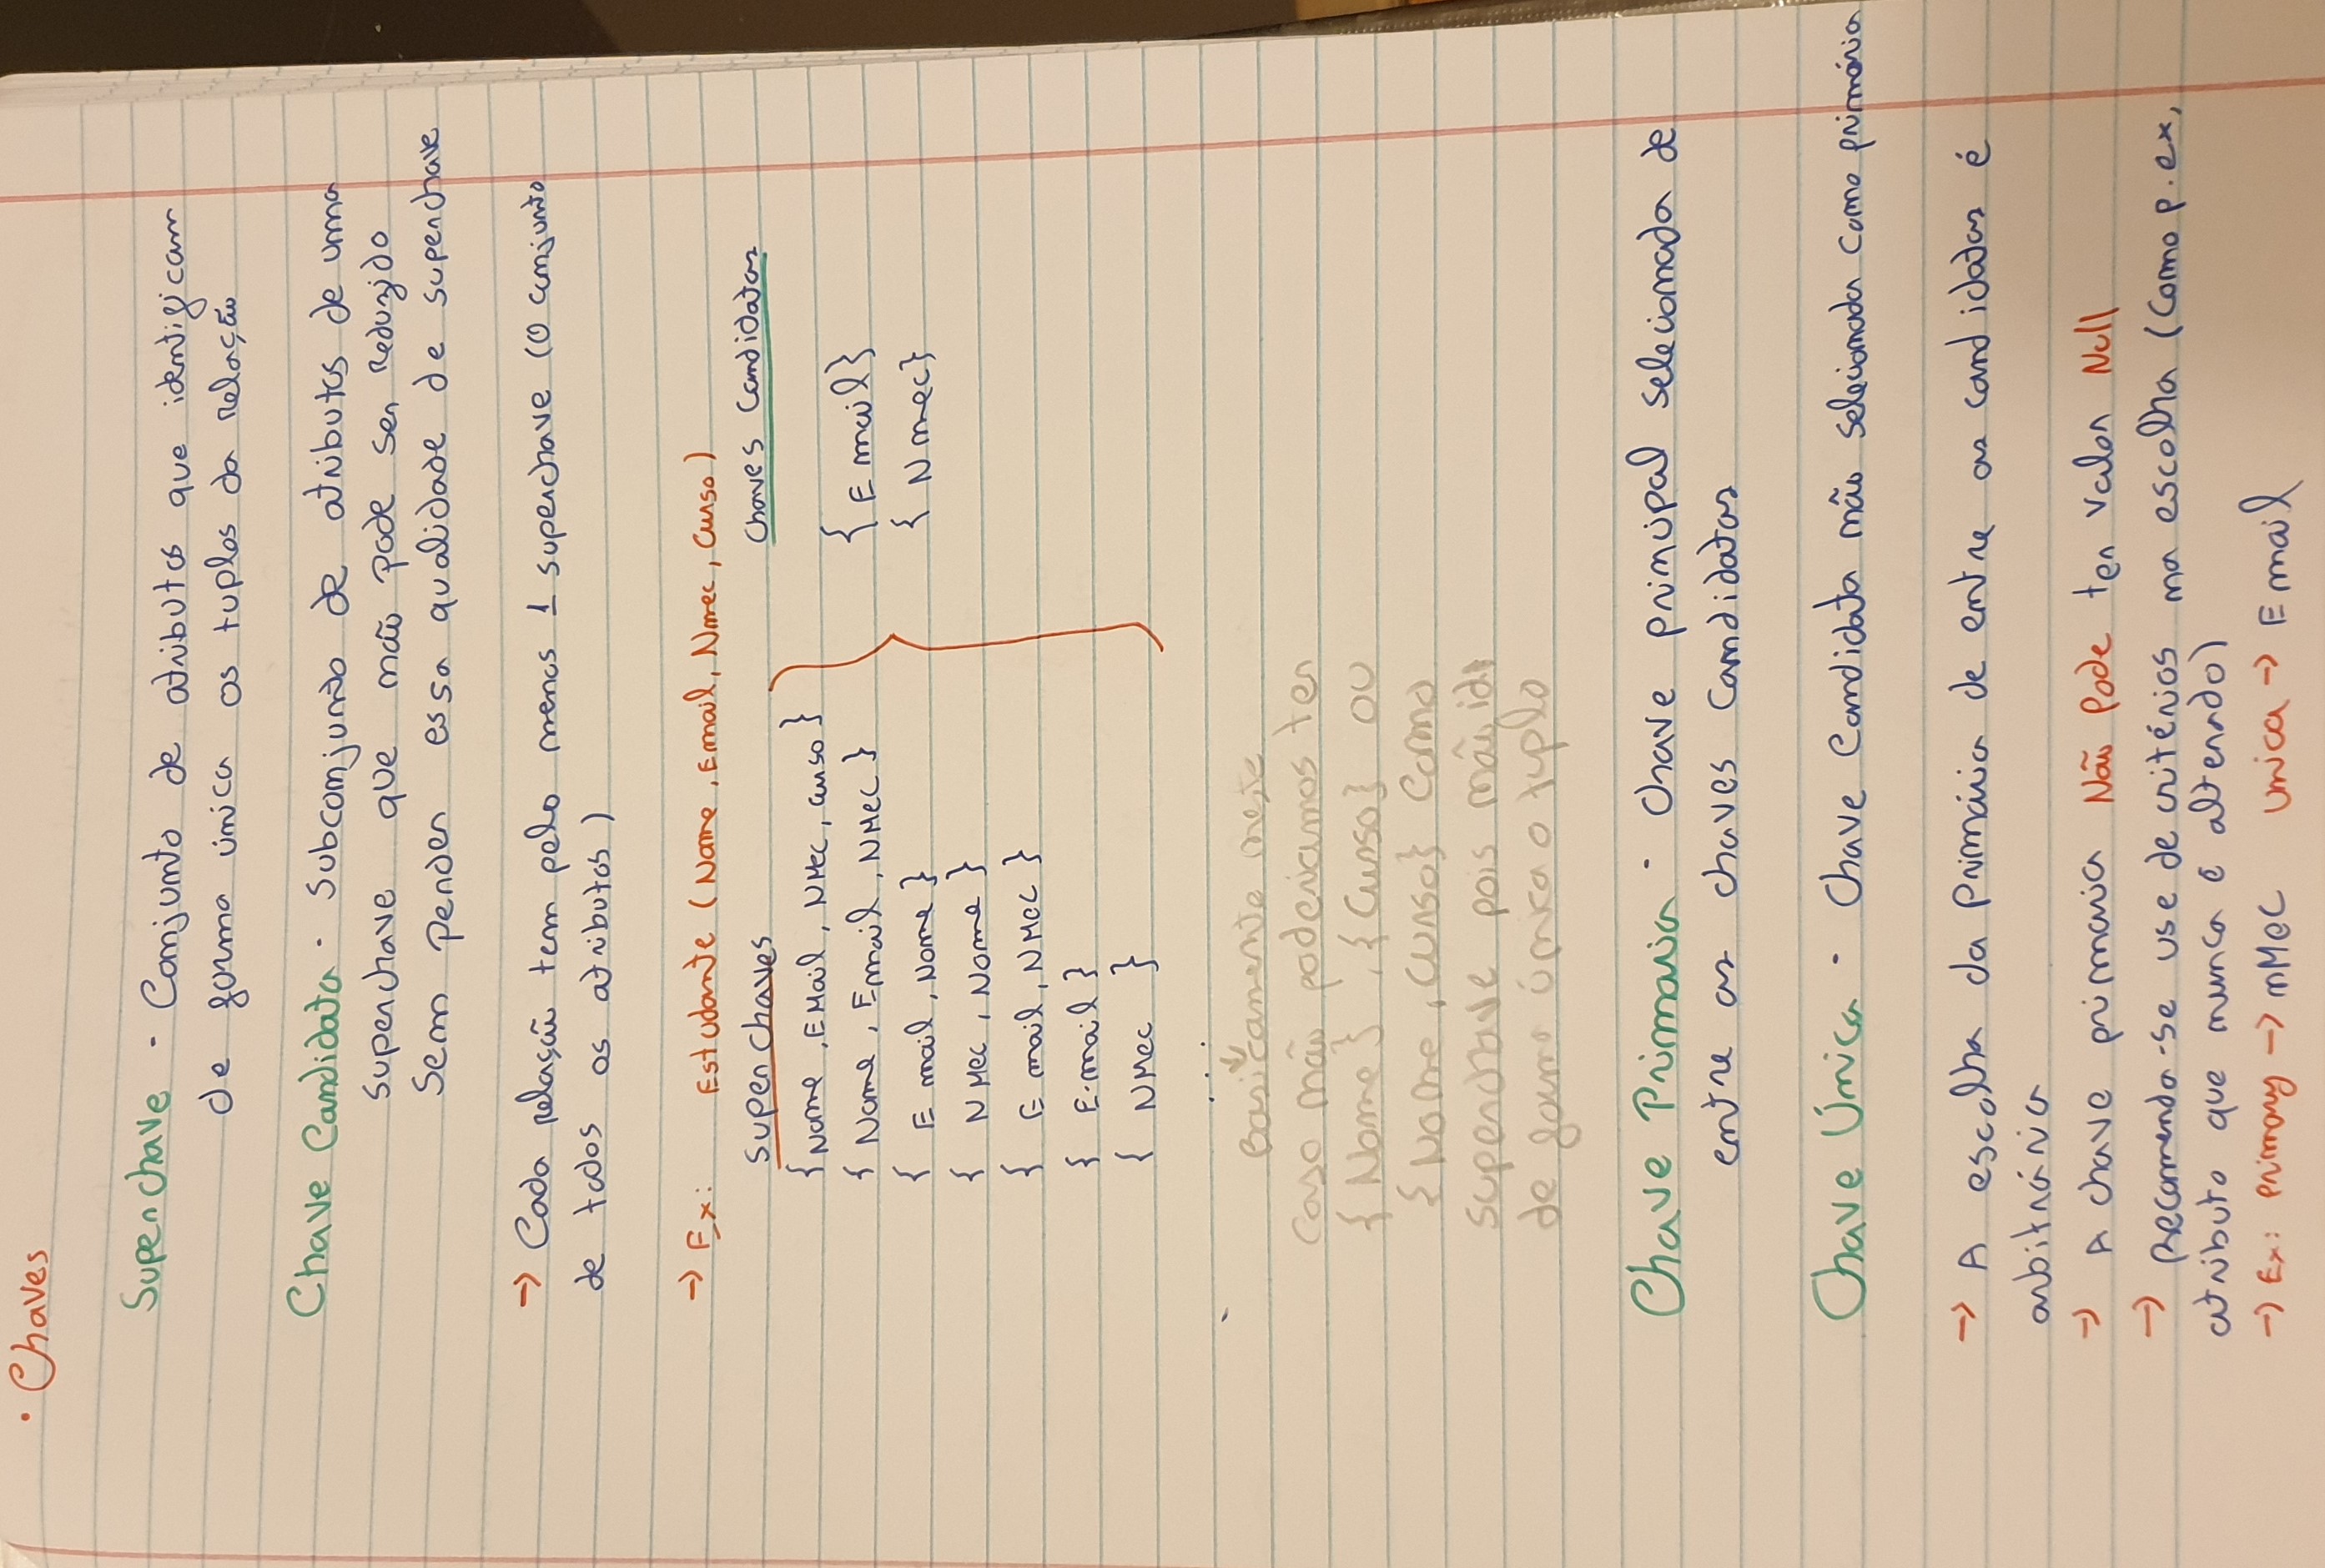 • Chaves
Superchave - Conjunto de atributos que identificam
de forma única os tuplos da relação
Chave Candidata - Subconjunto de atributos de uma
superchave que não pode ser reduzido
sem perder essa qualidade de superchave
→ Cada relação tem pelo menos 1 superchave (O conjunto
de todos os atributos)
→ Ex: Estudante (Nome, Email, Nmec, Curso)
Superchaves Chaves Candidatas
{Nome, EMail, NMec, curso}
{Nome, Email, NMec} {Email}
{Email, Nome} {Nmec}
{NMec, Nome}
{Email, NMec}
{E-mail}
{NMec}
...
Basicamente neste
caso não poderiamos ter
{Nome}, {Curso} ou
{Nome, Curso} como
superchave pois não id.
de forma única o tuplo
Chave Primaria - Chave principal selecionada de
entre as chaves candidatas
Chave Única - Chave Candidata não selecionada como primária
→ A escolha da Primária de entre as candidatas é
arbitrária
→ A chave primaria Não Pode ter valor Null
→ Recomenda-se use de critérios na escolha (Como p. ex,
atributo que nunca é alterado)
→ Ex: Primary → nMec Unica → Email